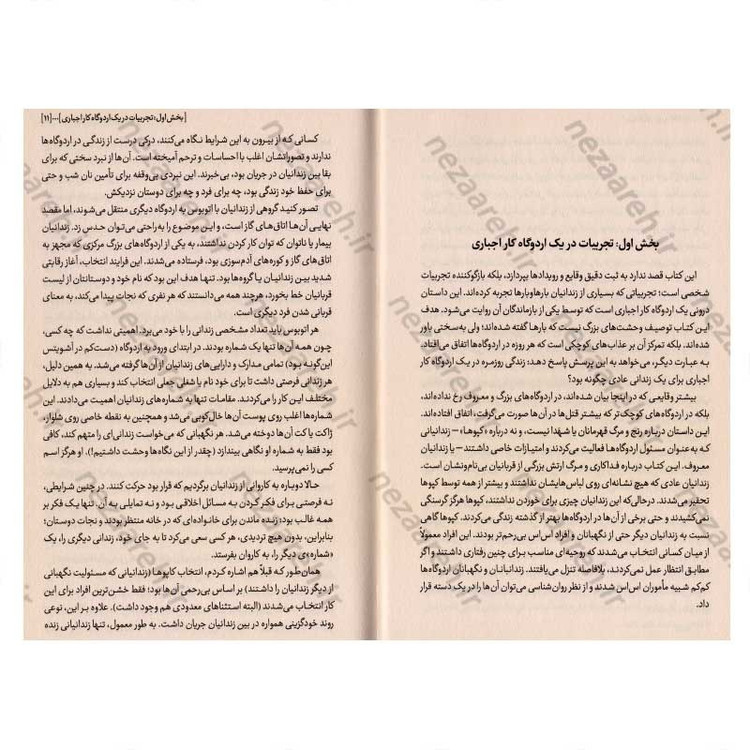 بخش اول: تجربیات در یک اردوگاه کار اجباری
این کتاب قصد ندارد به ثبت دقیق وقایع و رویدادها بپردازد، بلکه بازگوکننده تجربیات
شخصی است؛ تجربیاتی که بسیاری از زندانیان بارهاوبارها تجربه کرده‌اند. این داستان
درونی یک اردوگاه کار اجباری است که توسط یکی از بازماندگان آن روایت می‌شود. هدف
این کتاب توصیف وحشت‌های بزرگ نیست که بارها گفته شده‌اند؛ ولی به‌سختی باور
شده‌اند، بلکه تمرکز آن بر عذاب‌های کوچکی است که هر روزه در اردوگاه‌ها اتفاق می‌افتاد،
به عبارت دیگر، می‌خواهد به این پرسش پاسخ دهد: زندگی روزمره در یک اردوگاه کار
اجباری برای یک زندانی عادی چگونه بود؟
بیشتر وقایعی که در اینجا بیان شده‌اند، در اردوگاه‌های بزرگ و معروف رخ نداده‌اند،
بلکه در اردوگاه‌های کوچک‌تر که بیشتر قتل‌ها در آن‌ها صورت می‌گرفت، اتفاق افتاده‌اند.
این داستان درباره رنج و مرگ قهرمانان یا شهدا نیست، و نه درباره «کپوها» — زندانیانی
که به‌عنوان مسئول اردوگاه‌ها فعالیت می‌کردند و امتیازات خاصی داشتند — یا زندانیان
معروف. این کتاب درباره فداکاری و مرگ ارتش بزرگی از قربانیان بی‌نام‌ونشان است.
زندانیان عادی که هیچ نشانه‌ای روی لباس‌هایشان نداشتند و بیشتر از همه توسط کپوها
تحقیر می‌شدند. درحالی‌که این زندانیان چیزی برای خوردن نداشتند، کپوها هرگز گرسنگی
نمی‌کشیدند و حتی برخی از آن‌ها در اردوگاه‌ها بهتر از گذشته زندگی می‌کردند. کپوها گاهی
نسبت به زندانیان دیگر حتی از نگهبانان و افراد اس‌اس بی‌رحم‌تر بودند. این افراد معمولاً
از میان کسانی انتخاب می‌شدند که روحیه‌ای مناسب برای چنین رفتاری داشتند و اگر
مطابق انتظار عمل نمی‌کردند، بلافاصله تنزل می‌یافتند. زندانبانان و نگهبانان اردوگاه‌ها
کم‌کم شبیه مأموران اس‌اس شدند و از نظر روان‌شناسی می‌توان آن‌ها را در یک دسته قرار
داد.
[بخش اول: تجربیات در یک اردوگاه کار اجباری]...[۱۱]
کسانی که از بیرون به این شرایط نگاه می‌کنند، درکی درست از زندگی در اردوگاه‌ها
ندارند و تصوراتشان اغلب با احساسات و ترحم آمیخته است. آن‌ها از نبرد سختی که برای
بقا بین زندانیان در جریان بود، بی‌خبرند. این نبردی بی‌وقفه برای تأمین نان شب و حتی
برای حفظ خود زندگی بود، چه برای فرد و چه برای دوستان نزدیکش.
تصور کنید گروهی از زندانیان با اتوبوس به اردوگاه دیگری منتقل می‌شوند، اما مقصد
نهایی آن‌ها اتاق‌های گاز است، و این موضوع را به‌راحتی می‌توان حدس زد. زندانیان
بیمار یا ناتوان که توان کار کردن نداشتند، به یکی از اردوگاه‌های بزرگ مرکزی که مجهز به
اتاق‌های گاز و کوره‌های آدم‌سوزی بود، فرستاده می‌شدند. این فرایند انتخاب، آغاز رقابتی
شدید بین زندانیان یا گروه‌ها بود. تنها هدف این بود که نام خود و دوستانتان از لیست
قربانیان خط بخورد، هرچند همه می‌دانستند که هر نفری که نجات پیدا می‌کند، به معنای
قربانی شدن فرد دیگری است.
هر اتوبوس باید تعداد مشخصی زندانی را با خود می‌برد. اهمیتی نداشت که چه کسی،
چون همه آن‌ها تنها یک شماره بودند. در ابتدای ورود به اردوگاه (دست‌کم در آشویتس
این‌گونه بود) تمامی مدارک و دارایی‌های زندانیان از آن‌ها گرفته می‌شد. به همین دلیل،
هر زندانی فرصتی داشت تا برای خود نام یا شغلی جعلی انتخاب کند و بسیاری هم به دلایل
مختلف این کار را می‌کردند. مقامات تنها به شماره‌های زندانیان اهمیت می‌دادند. این
شماره‌ها اغلب روی پوست آن‌ها خال‌کوبی می‌شد و همچنین به نقطه خاصی روی شلوار،
ژاکت یا کت آن‌ها دوخته می‌شد. هر نگهبانی که می‌خواست زندانی‌ای را متهم کند، کافی
بود فقط به شماره او نگاهی بیندازد (چقدر از این نگاه‌ها وحشت داشتیم!). او هرگز اسم
کسی را نمی‌پرسید.
حالا دوباره به کاروانی از زندانیان برگردیم که قرار بود حرکت کنند. در چنین شرایطی،
نه فرصتی برای فکر کردن به مسائل اخلاقی بود و نه تمایلی به آن. تنها یک فکر بر
همه غالب بود: زنده ماندن برای خانواده‌ای که در خانه منتظر بودند و نجات دوستان؛
بنابراین، بدون هیچ تردیدی، هر کسی سعی می‌کرد تا به جای خود، زندانی دیگری را، یک
«شماره»ی دیگر را، به کاروان بفرستد.
همان‌طور که قبلاً هم اشاره کردم، انتخاب کاپوها (زندانیانی که مسئولیت نگهبانی
از دیگر زندانیان را داشتند) بر اساس بی‌رحمی آن‌ها بود؛ فقط خشن‌ترین افراد برای این
کار انتخاب می‌شدند (البته استثناهای معدودی هم وجود داشت). علاوه بر این، نوعی
روند خودگزینی همواره در بین زندانیان جریان داشت. به طور معمول، تنها زندانیانی زنده
nezaareh.ir